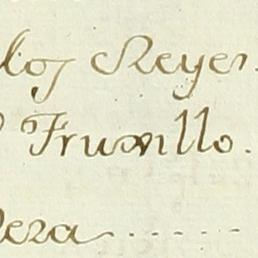 los Reyes.
Truxillo.
Vera